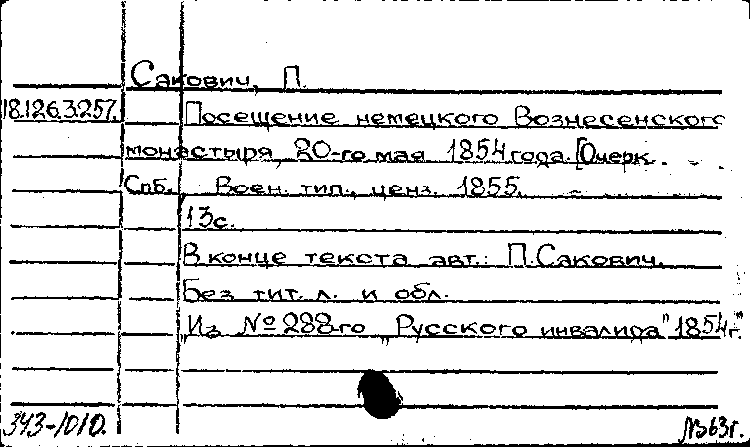 Сакович, П.
18.126.3.257. Посещение немецкого Вознесенского
монастыря 20-го мая 1854 года. [Очерк.
Спб., Воен. тип., ценз. 1855.
13с.
В конце текста авт.: П.Сакович.
Без тит. л. и обл.
"Из №288-го „Русского инвалида" 1854г."
343-1010.